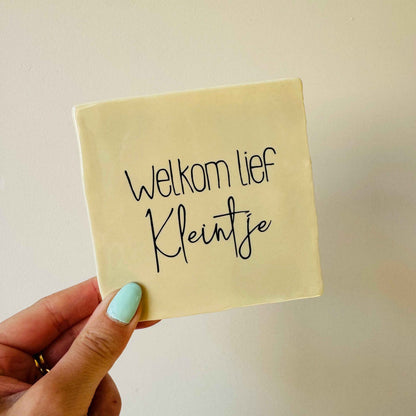 Welkom lief
Kleintje